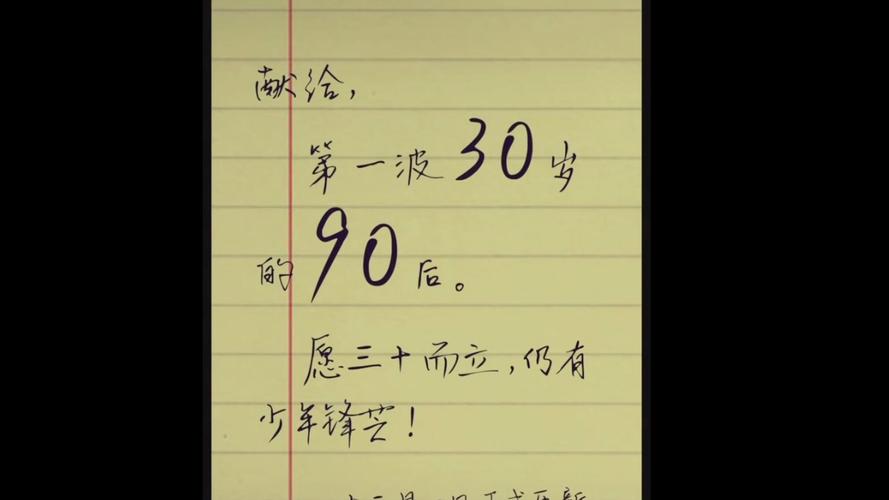 献给，
第一波30岁
的90后。
愿三十而立，仍有
少年锋芒！